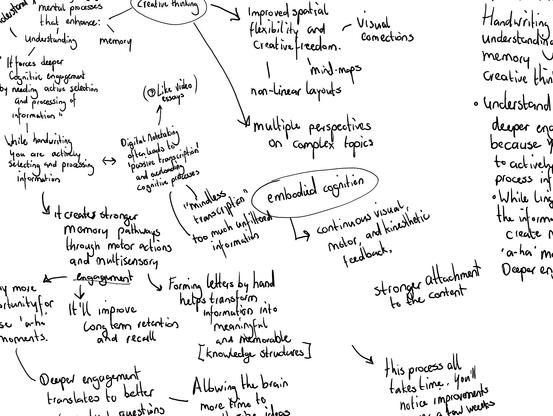 understand
mental processes
that enhance:
understanding
memory
creative thinking
Improved spatial
flexibility and
Creative freedom.
Visual
connections
mind-maps
non-linear layouts
multiple perspectives
on complex topics
It forces deeper
Cognitive engagement
by needing active selection
and processing of
information"
While handwriting
you are actively
selecting and processing
information
(Like video
essays)
Digital notetaking
often leads to
'passive transcription'
and
cognitive processes
"mindless
transcription"
too much unfiltered
information
embodied cognition
continuous visual,
motor, and kinesthetic
feedback.
it creates stronger
memory pathways
through motor actions
and multisensory
engagement
more
for
'a-ha'
moments.
It'll improve
Long term retention
and recall
Forming letters by hand
helps transform
information into
meaningful
and memorable
[knowledge structures]
stronger attachment
to the content
Deeper engagement
translates to better
questions
Allowing the brain
more time to
ideas
this process all
takes time. You'll
notice improvements
a few weeks
Handwriting
understanding
memory
Creative thin
• Understand
deeper eng
because y
to actively
process inf
• While
the inform
create
'a-ha' m
Deeper en